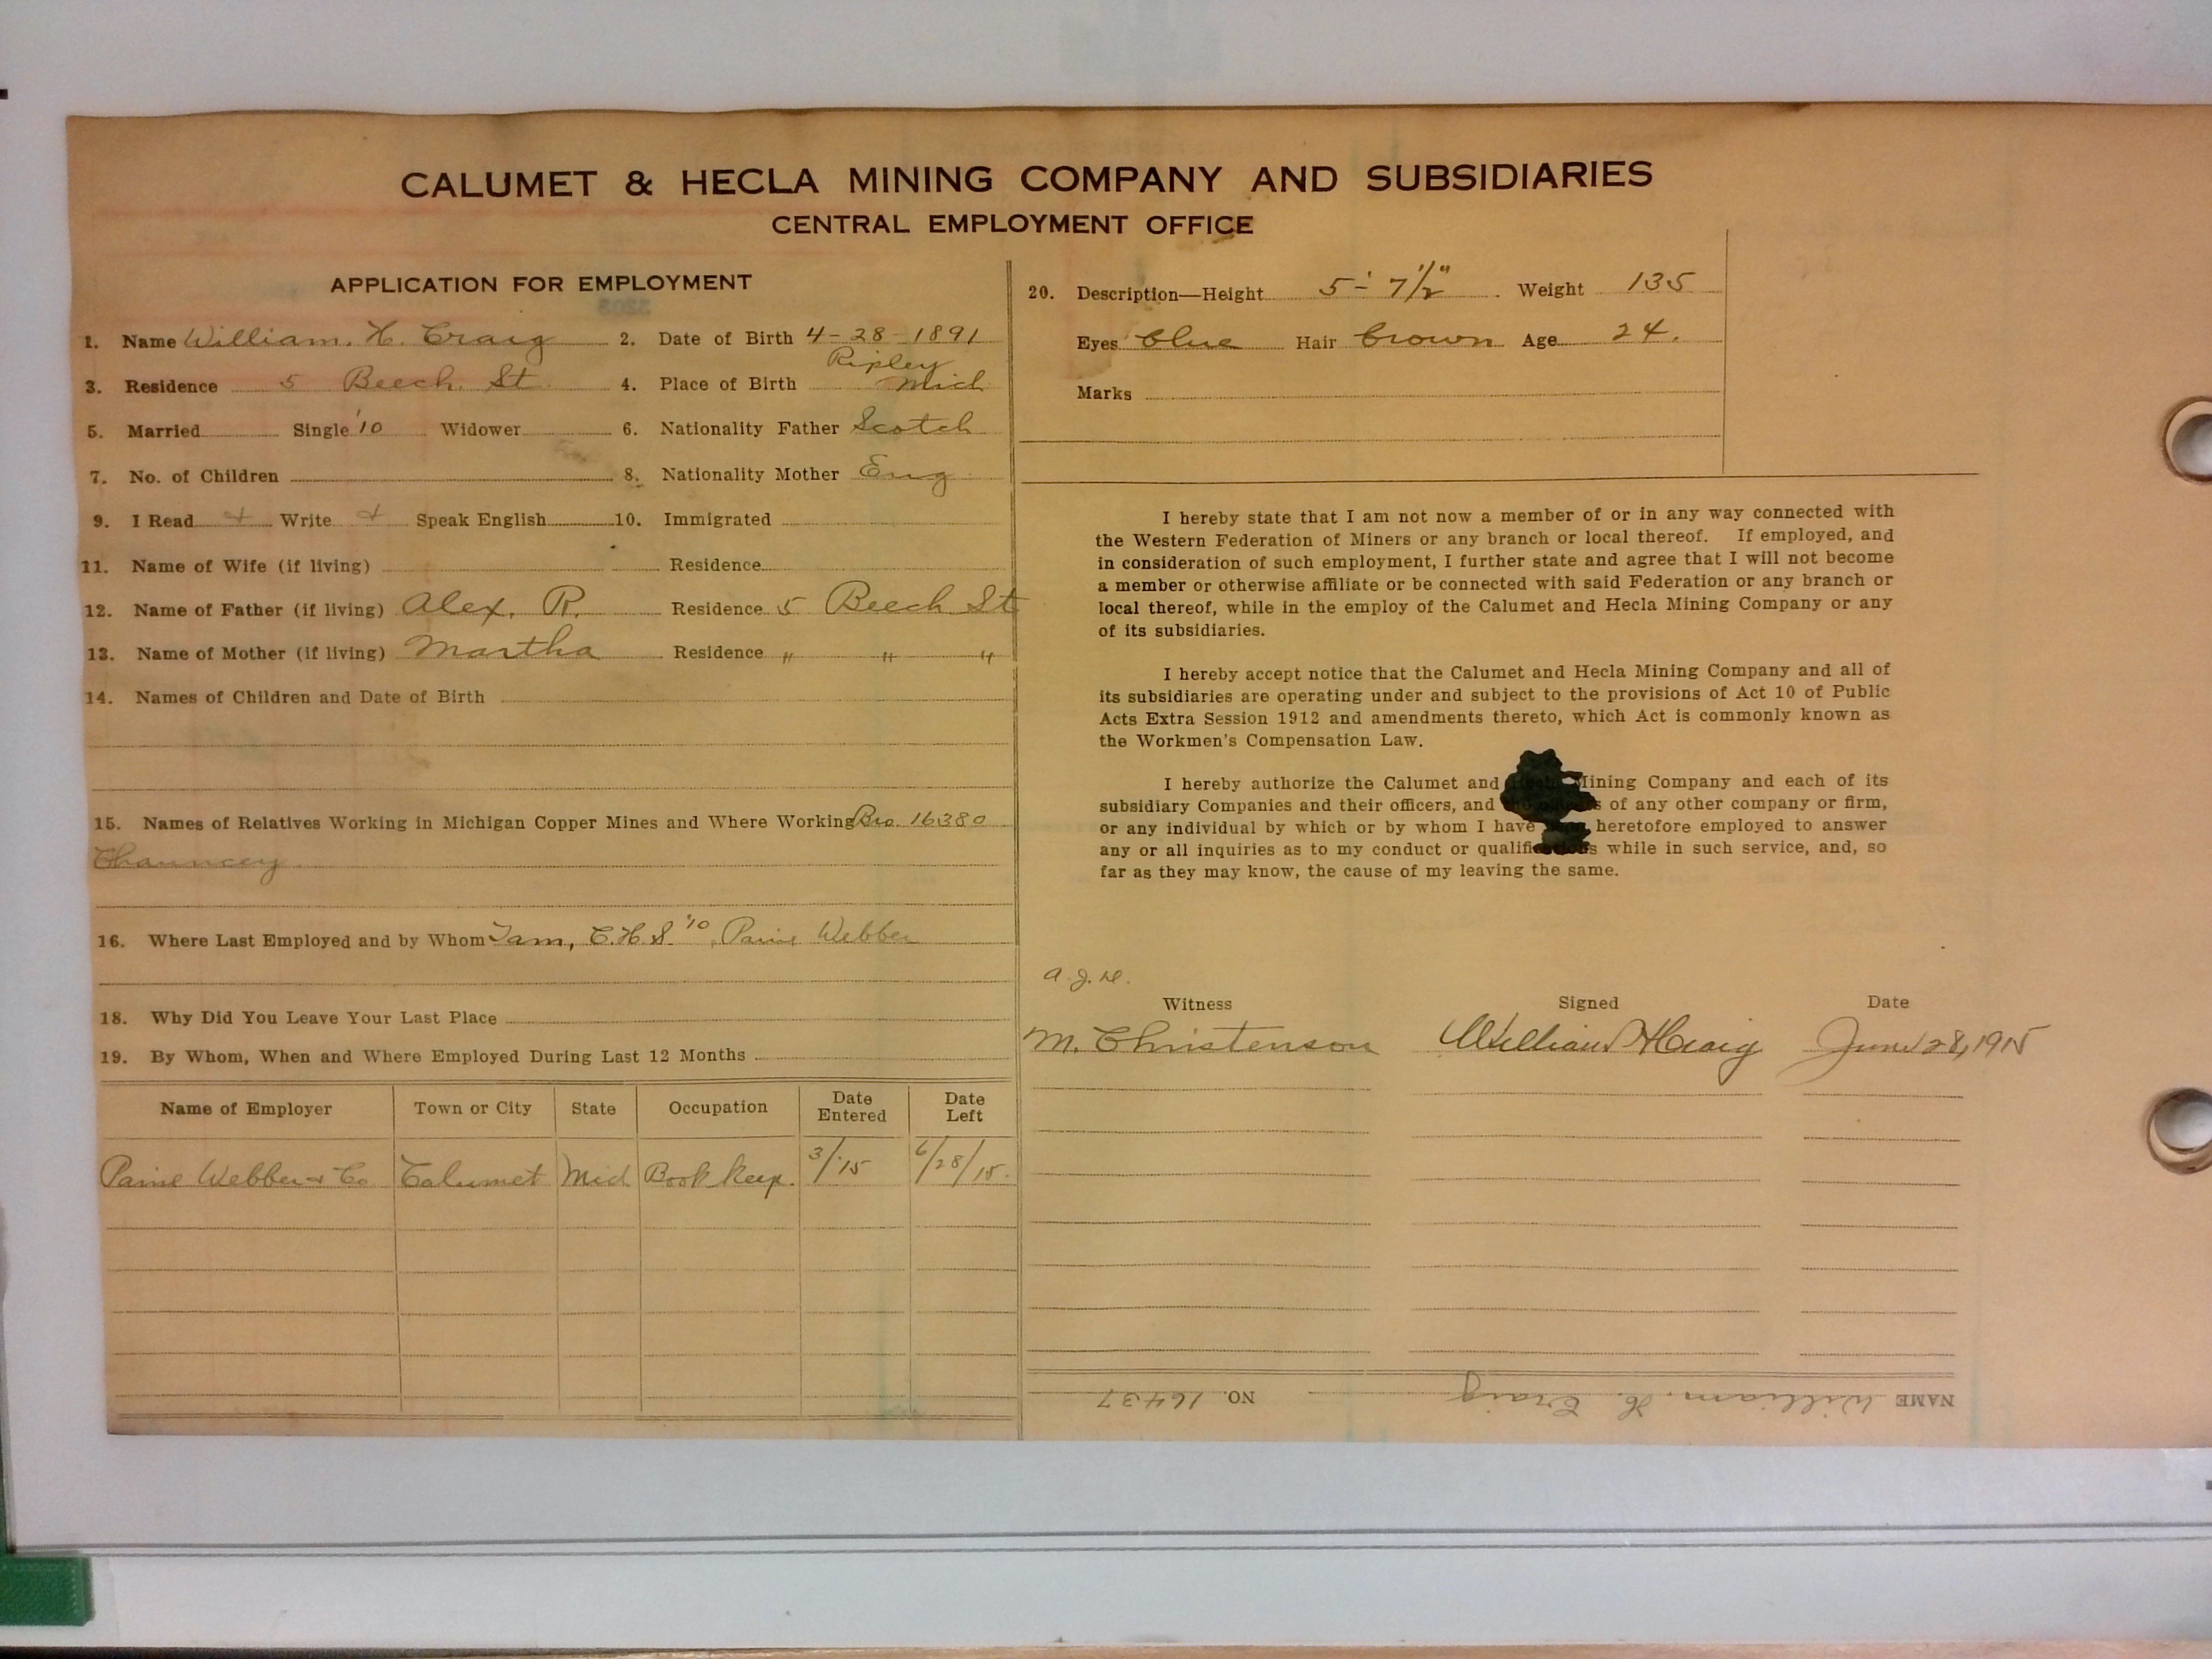 CALUMET & HECLA MINING COMPANY AND SUBSIDIARIES
CENTRAL EMPLOYMENT OFFICE
APPLICATION FOR EMPLOYMENT
1. Name William. H. Craig 2. Date of Birth 4-28-1891
3. Residence 5 Beech. St 4. Place of Birth Ripley Mich
5. Married Single '10 Widower 6. Nationality Father Scotch
7. No. of Children 8. Nationality Mother Eng
9. I Read + Write + Speak English 10. Immigrated
11. Name of Wife (if living) Residence
12. Name of Father (if living) Alex. R. Residence 5 Beech St
13. Name of Mother (if living) Martha Residence " " "
14. Names of Children and Date of Birth
15. Names of Relatives Working in Michigan Copper Mines and Where Working Bro. 16380
Chauncey
16. Where Last Employed and by Whom Tam, C.H.S. '10, Paine Webber
18. Why Did You Leave Your Last Place
19. By Whom, When and Where Employed During Last 12 Months
Name of Employer Town or City State Occupation Date Entered Date Left
Paine Webber & Co Calumet Mich Book keep. 3/'15 6/28/15.
20. Description—Height 5'- 7 1/2" Weight 135
Eyes blue Hair brown Age 24.
Marks
I hereby state that I am not now a member of or in any way connected with
the Western Federation of Miners or any branch or local thereof. If employed, and
in consideration of such employment, I further state and agree that I will not become
a member or otherwise affiliate or be connected with said Federation or any branch or
local thereof, while in the employ of the Calumet and Hecla Mining Company or any
of its subsidiaries.
I hereby accept notice that the Calumet and Hecla Mining Company and all of
its subsidiaries are operating under and subject to the provisions of Act 10 of Public
Acts Extra Session 1912 and amendments thereto, which Act is commonly known as
the Workmen's Compensation Law.
I hereby authorize the Calumet and Hecla Mining Company and each of its
subsidiary Companies and their officers, and of any other company or firm,
or any individual by which or by whom I have heretofore employed to answer
any or all inquiries as to my conduct or qualifications while in such service, and, so
far as they may know, the cause of my leaving the same.
a.J.H.
Witness Signed Date
M. Christenson William H Craig June 28, 1915
NAME William. H. Craig NO. 16437